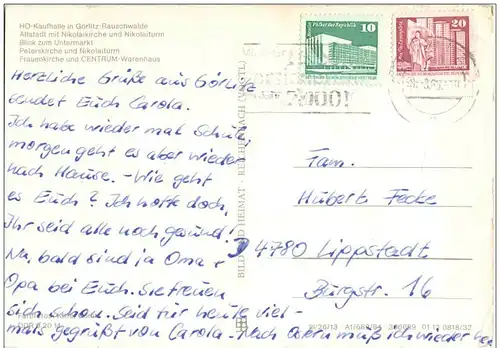 HO-Kaufhalle in Görlitz-Rauschwalde
Altstadt mit Nikolaikirche und Nikolaiturm
Blick zum Untermarkt
Peterskirche und Nikolaiturm
Frauenkirche und CENTRUM-Warenhaus
10
20
7000!
Herzliche Grüße aus Görlitz
sendet Euch Carola.
Ich habe wieder mal Schule,
morgen geht es aber wieder
nach Hause. Wie geht
es Euch? Ich hoffe doch,
Ihr seid alle noch gesund!
Na, bald sind ja Oma +
Opa bei Euch. Sie freuen
sich schon. Seid für heute viel-
mals gegrüßt von Carola. Nach Ostern muß ich wieder her
BILD UND HEIMAT · REICHENBACH (VOGTL)
Fam.
Hubert Fecke
D 4780 Lippstadt
Burgstr. 16